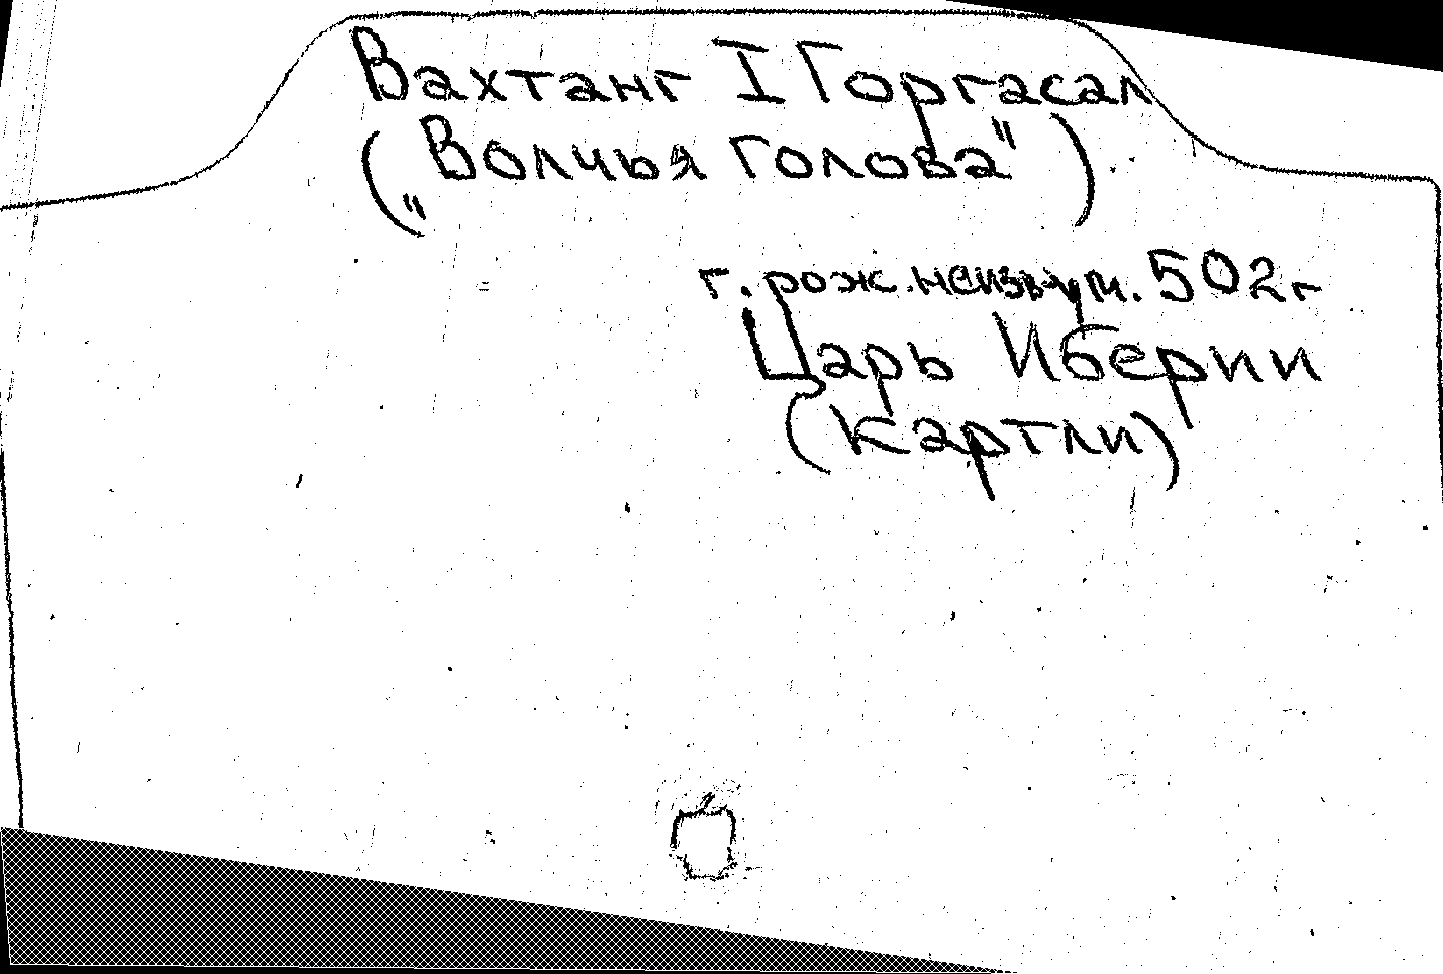 Вахтанг I Горгасал
(„Волчья голова")
г. рож. неизв-ум. 502 г
Царь Иберии
(Картли)